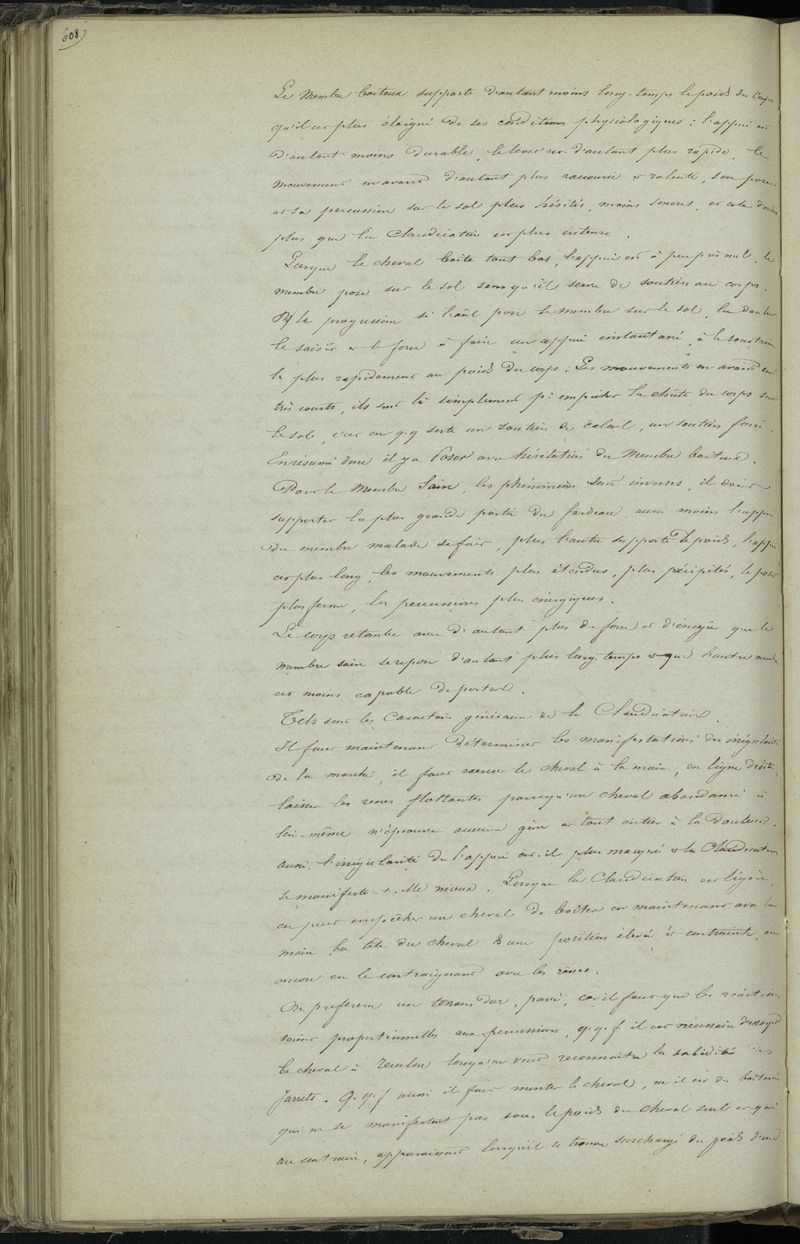 608
Le Membre boiteux supporte d'autant moins long-temps le poids du Corps
qu'il est plus éloigné de ses conditions physiologiques : l'appui est
d'autant moins durable, le lever est d'autant plus rapide, le
mouvement en avant d'autant plus raccourci et ralenti, son poser
et sa percussion sur le sol plus hésités, moins sonores, et cela d'autant
plus que la Claudication est plus intense.
Lorsque le cheval boite tout bas, l'appui est à peu près nul, le
membre pose sur le sol sans qu'il serve de soutien au corps.
la progression si l'anl pose le membre sur le sol, la douleur
le saisit et le force à faire un appui instantané, à le soustraire
le plus rapidement au poids du corps : Les mouvements en avant sont
très courts, ils sont là simplement pr empêcher la chûte du corps sur
le sol, c'est en q.q sorte un soutien de calcul, un soutien forcé.
En résumé donc il y a Poser avec hésitation du Membre boiteux.
Pour le Membre Sain, les phénomènes sont inverses, il doit
supporter la plus grande partie du fardeau aussi moins l'appui
du membre malade se fait, plus l'autre supporte le poids, l'appui
est plus long, les mouvements plus étendus, plus précipités, le poser
plus ferme, les percussions plus énergiques.
Le corps retombe avec d'autant plus de force et d'énergie que le
membre sain se repose d'autant plus long-temps et que l'autre membre
est moins capable de porter.
Tels sont les Caractères généraux de la Claudication.
Il faut maintenant déterminer les manifestations des irrégularités
de la marche, il faut exercer le cheval à la main, en ligne droite,
laisser les rênes flottantes parcequ'un cheval abandonné à
lui-même n'éprouve aucune gêne est tout entier à la douleur.
aussi l'irrégularité de l'appui est-il plus marqué et la Claudication
se manifeste-t-elle mieux. Lorsque la Claudication est légère,
on peut empêcher un cheval de boiter en maintenant avec la
main la tête du cheval d'une position élevée et contrainte, ou
encore en le contraignant avec les rênes.
On préférera un terrain dur, pavé, car il faut que les réactions
soient proportionnelles aux percussions, q.q.f il est nécessaire d'essayer
le cheval à reculer lorsqu'on veut reconnaître la solidité des
Jarrets. q.q.f aussi il faut monter le cheval, car il est des boiteries
qui ne se manifestent pas sous le poids du cheval seul et qui
au contraire, apparaissent lorsqu'il se trouve surchargé du poids d'un